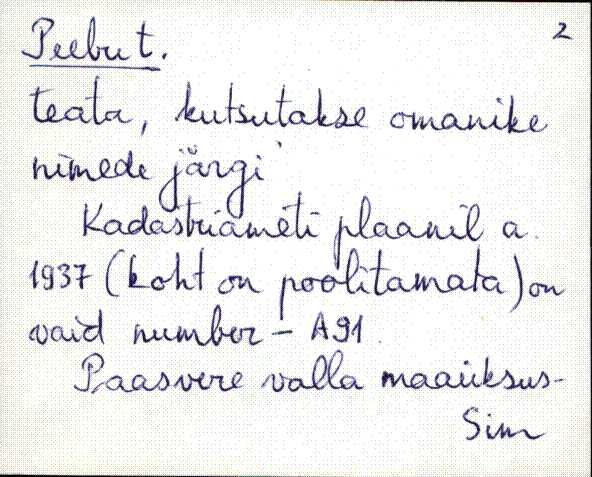 2
Peebu t.
teata, kutsutakse omanike
nimede järgi
Kadastriameti plaanil a.
1937 (koht on poolitamata) on
vaid number - A91.
Paasvere valla maaüksus-
Sim